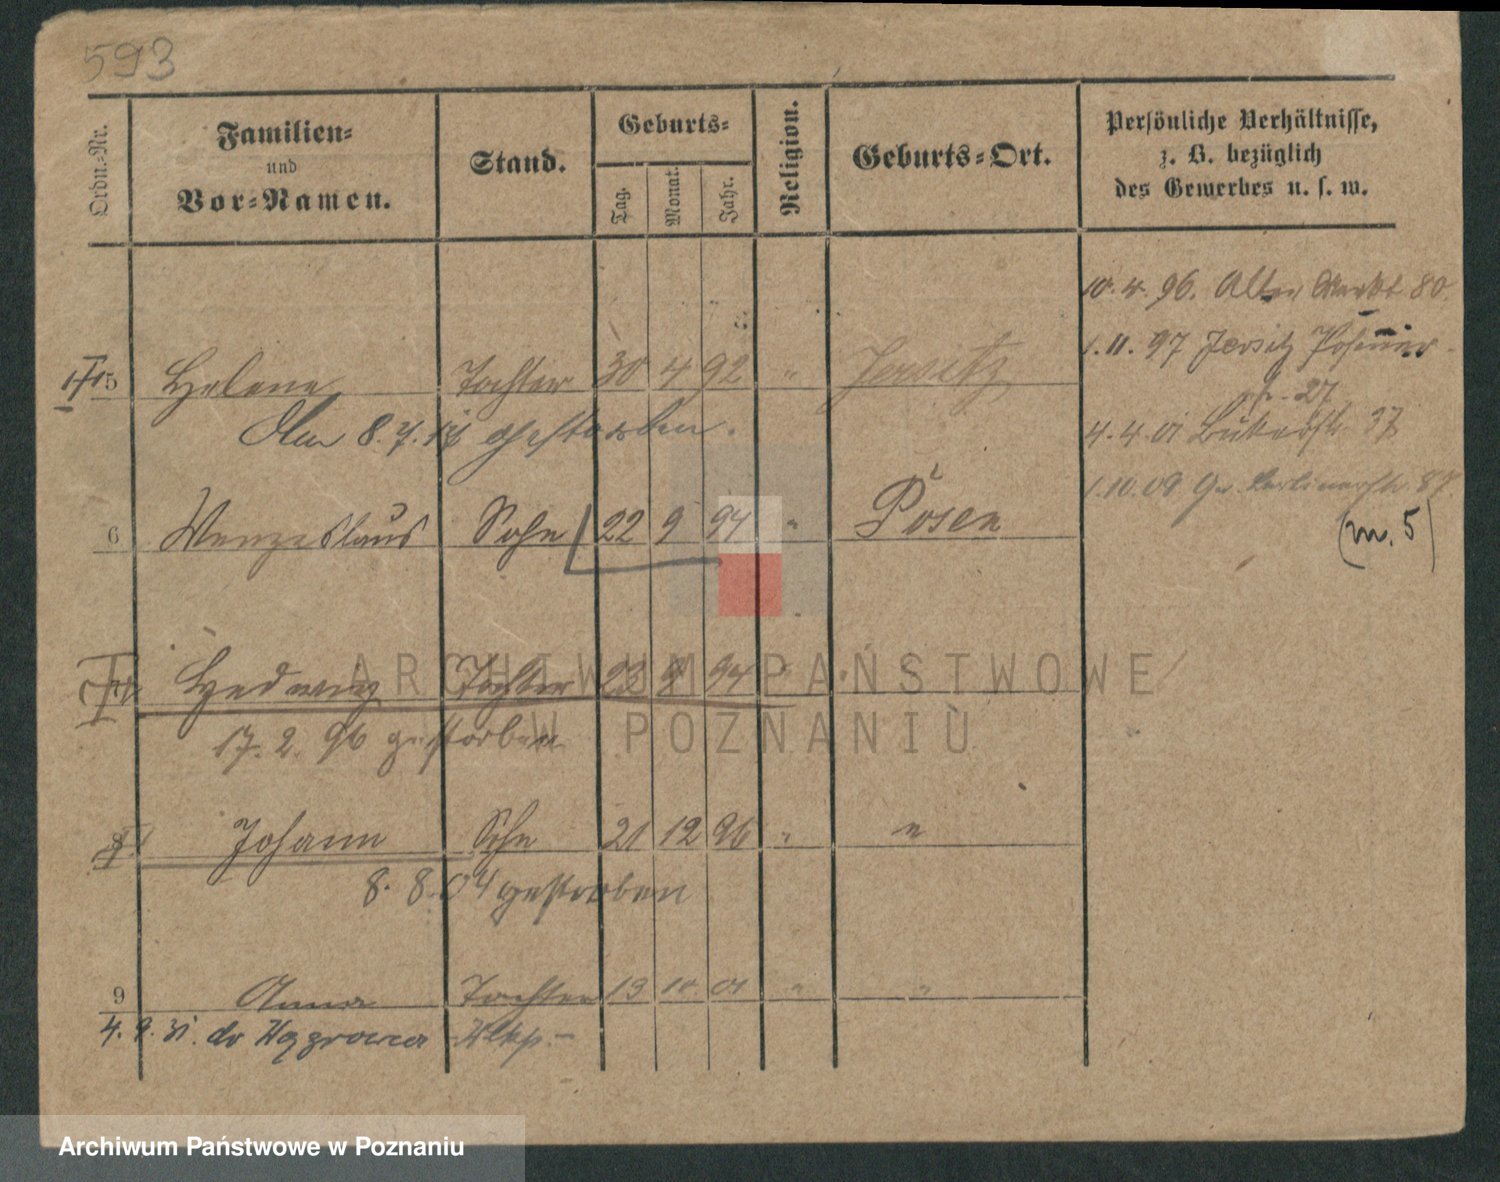 593
Ordn.-Nr.
Familien-
und
Vor-Namen.
Stand.
Geburts-
Tag.
Monat.
Jahr.
Religion.
Geburts-Ort.
Persönliche Verhältnisse,
z. B. bezüglich
des Gewerbes u. s. w.
10. 4. 96. Alter Markt 80.
1. 11. 97 Jersitz Posener-
str. 27
4. 4. 01 Bukerstr. 37
1.10.09 Gr. Berlinerstr. 88
(m. 5)
5 Helene Tochter 30 4 92 " Jersitz
Am 8. 7. gestorben.
6 Wenzeslaus Sohn 22 9 94 " Posen
Hedwig Tochter 23 9 94 " "
17. 2. 96 gestorben
8 Johann Sohn 21 12 96 " "
8. 8. 04 gestorben
9 Anna Tochter 13 10 01 " "
4. 9. 31. do Wągrowca Wlkp. -
ARCHIWUM PAŃSTWOWE
W POZNANIU
Archiwum Państwowe w Poznaniu